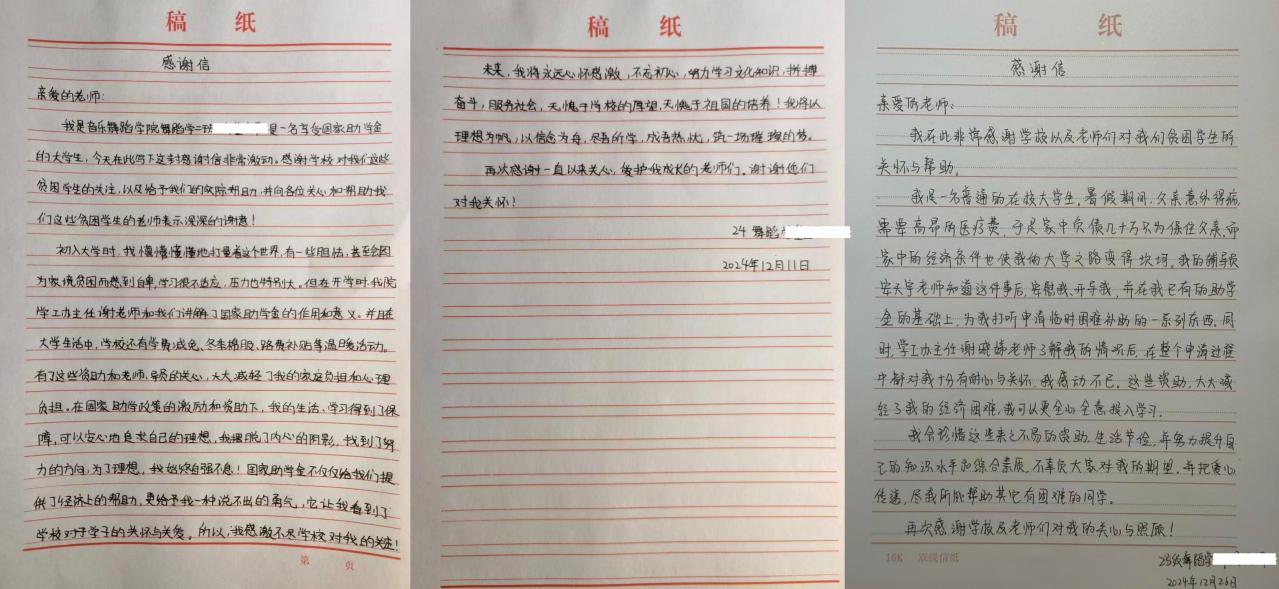 稿 纸
感谢信
亲爱的老师:
我是音乐舞蹈学院舞蹈学一班 是一名享受国家助学金
的大学生,今天在此写下这封感谢信非常激动。感谢学校对我们这些
贫困学生的关注,以及给予我们的实际帮助,并向各位关心和帮助我
们这些贫困学生的老师表示深深的谢意!
初入大学时,我懵懵懂懂地打量着这个世界,有一些胆怯,甚至会因
为家境贫困而感到自卑,学习很不适应,压力也特别大。但在开学时,我院
学工办主任谢老师和我们讲解了国家助学金的作用和意义,并且在
大学生活中,学校还有学费减免、冬季棉服、路费补贴等温暖活动。
有了这些资助和老师、导员的关心,大大减轻了我的家庭负担和心理
负担。在国家助学政策的激励和资助下,我的生活、学习得到了保
障,可以安心地追求自己的理想,我摆脱了内心的阴影,找到了努
力的方向,为了理想,我始终自强不息!国家助学金不仅仅给我们提
供了经济上的帮助,更给予我一种说不出的勇气,它让我看到了
学校对于学子的关怀与关爱。所以,我感激不尽学校对我的关爱!
第 页
稿 纸
未来,我将永远心怀感激,不忘初心,努力学习文化知识,拼搏
奋斗,服务社会,无愧于学校的厚望,无愧于祖国的培养!我将以
理想为帆,以信念为舟,尽吾所学,成吾热忱,筑一场璀璨的梦。
再次感谢一直以来关心、爱护我成长的老师们。谢谢他们
对我关怀!
24 舞蹈
2024年12月11日
稿 纸
感谢信
亲爱的老师:
我在此非常感谢学校以及老师们对我们贫困学生的
关怀与帮助。
我是一名普通的在校大学生,暑假期间,父亲意外得病,
需要高昂的医疗费,于是家中负债几十万只为保住父亲,而
家中的经济条件也使我的大学之路变得坎坷。我的辅导员
安天宇老师知道这件事后,安慰我、开导我,并在我已有的助学
金的基础上,为我打听申请临时困难补助的一系列东西。同
时,学工办主任谢晓娣老师了解我的情况后,在整个申请过程
中都对我十分有耐心与关怀,我感动不已。这些资助,大大减
轻了我的经济困难,我可以更全心全意投入学习。
我会珍惜这些来之不易的资助,生活节俭,并努力提升自
己的知识水平和综合素质,不辜负大家对我的期望,并把爱心
传递,尽我所能帮助其它有困难的同学。
再次感谢学校及老师们对我的关心与照顾!
16K 双线信纸
23级舞蹈学
2024年12月26日